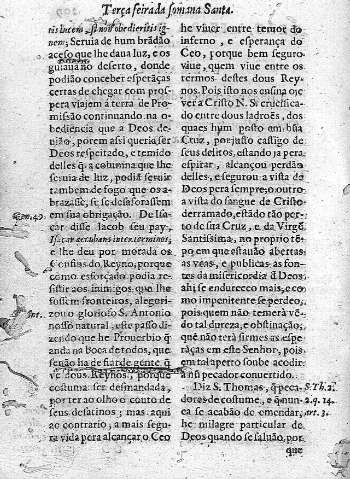 Terça feira da somana Santa.
tis lucem, si non obedieritis ig
nem; Seruia de hum brãdão
aceso que lhe daua luz, e os
guiaua no deserto, donde
podião conceber esperãças
certas de chegar com pros-
pera viajem â terra de Pro-
missão continuando na o-
bediencia que a Deos de-
uião, porem assi queria ser
Deos respeitado, e temido
delles q̃ a columna que lhe
seruia de luz, podia seruir
tambem de fogo que os a-
brazasse, se se desuorassem
em sua obrigação. De Isa-
car disse Iacob seu pay,
Isacar accubans inter terminos,
e lhe deu por morada os
confins do Reyno, porque
como esforçado podia re-
sistir aos inimigos que lhe
fossem fronteiros, alegori-
zou o glorioso S. Antonio
nosso natural, este passo di-
zendo que he Prouerbio q̃
anda na boca de todos, que
senão ha de fiar de gente q̃
viue dos Reynos; porque
costuma ser desmandada,
por ter ao olho o couto de
seus desatinos; mas aqui
ao contrario, a mais segu-
ra vida pera alcançar o Ceo
Gen. 49.
he viuer entre temor do
inferno, e esperança do
Ceo, porque bem seguro
viue, quem viue entre os
termos destes dous Rey-
nos. Pois isto nos ensina oje
ver a Cristo N. S. crucifica-
do entre dous ladroẽs, dos
quaes hum posto em hũa
Cruz, por justo castigo de
seus delitos, estando ja pera
espirar, alcançou perdão
delles, e segurou a vista de
Deos pera sempre, o outro
a vista do sangue de Cristo
derramado, estãdo tão per-
to de sua Cruz, e da Virgẽ
Santissima, no proprio tẽ-
po em que estauão abertas
as veas, e publicas as fon-
tes da misericordia de Deos;
ahi se endureceo mais, e co-
mo impenitente se perdeo,
pois quem não temerá vẽ-
do tal dureza, e obstinação,
que não terá firmes as espe-
rãças em este Senhor, pois
em tal aperto soube acodir
a hũ pecador conuertido.
Diz S. Thomas, q̃ peca-
dores de costume, e q̃ nun-
ca se acabão de emendar,
he milagre particular de
Deos quando se saluão, por
S. Th. 2.
2. q. 14.
art. 3.
que